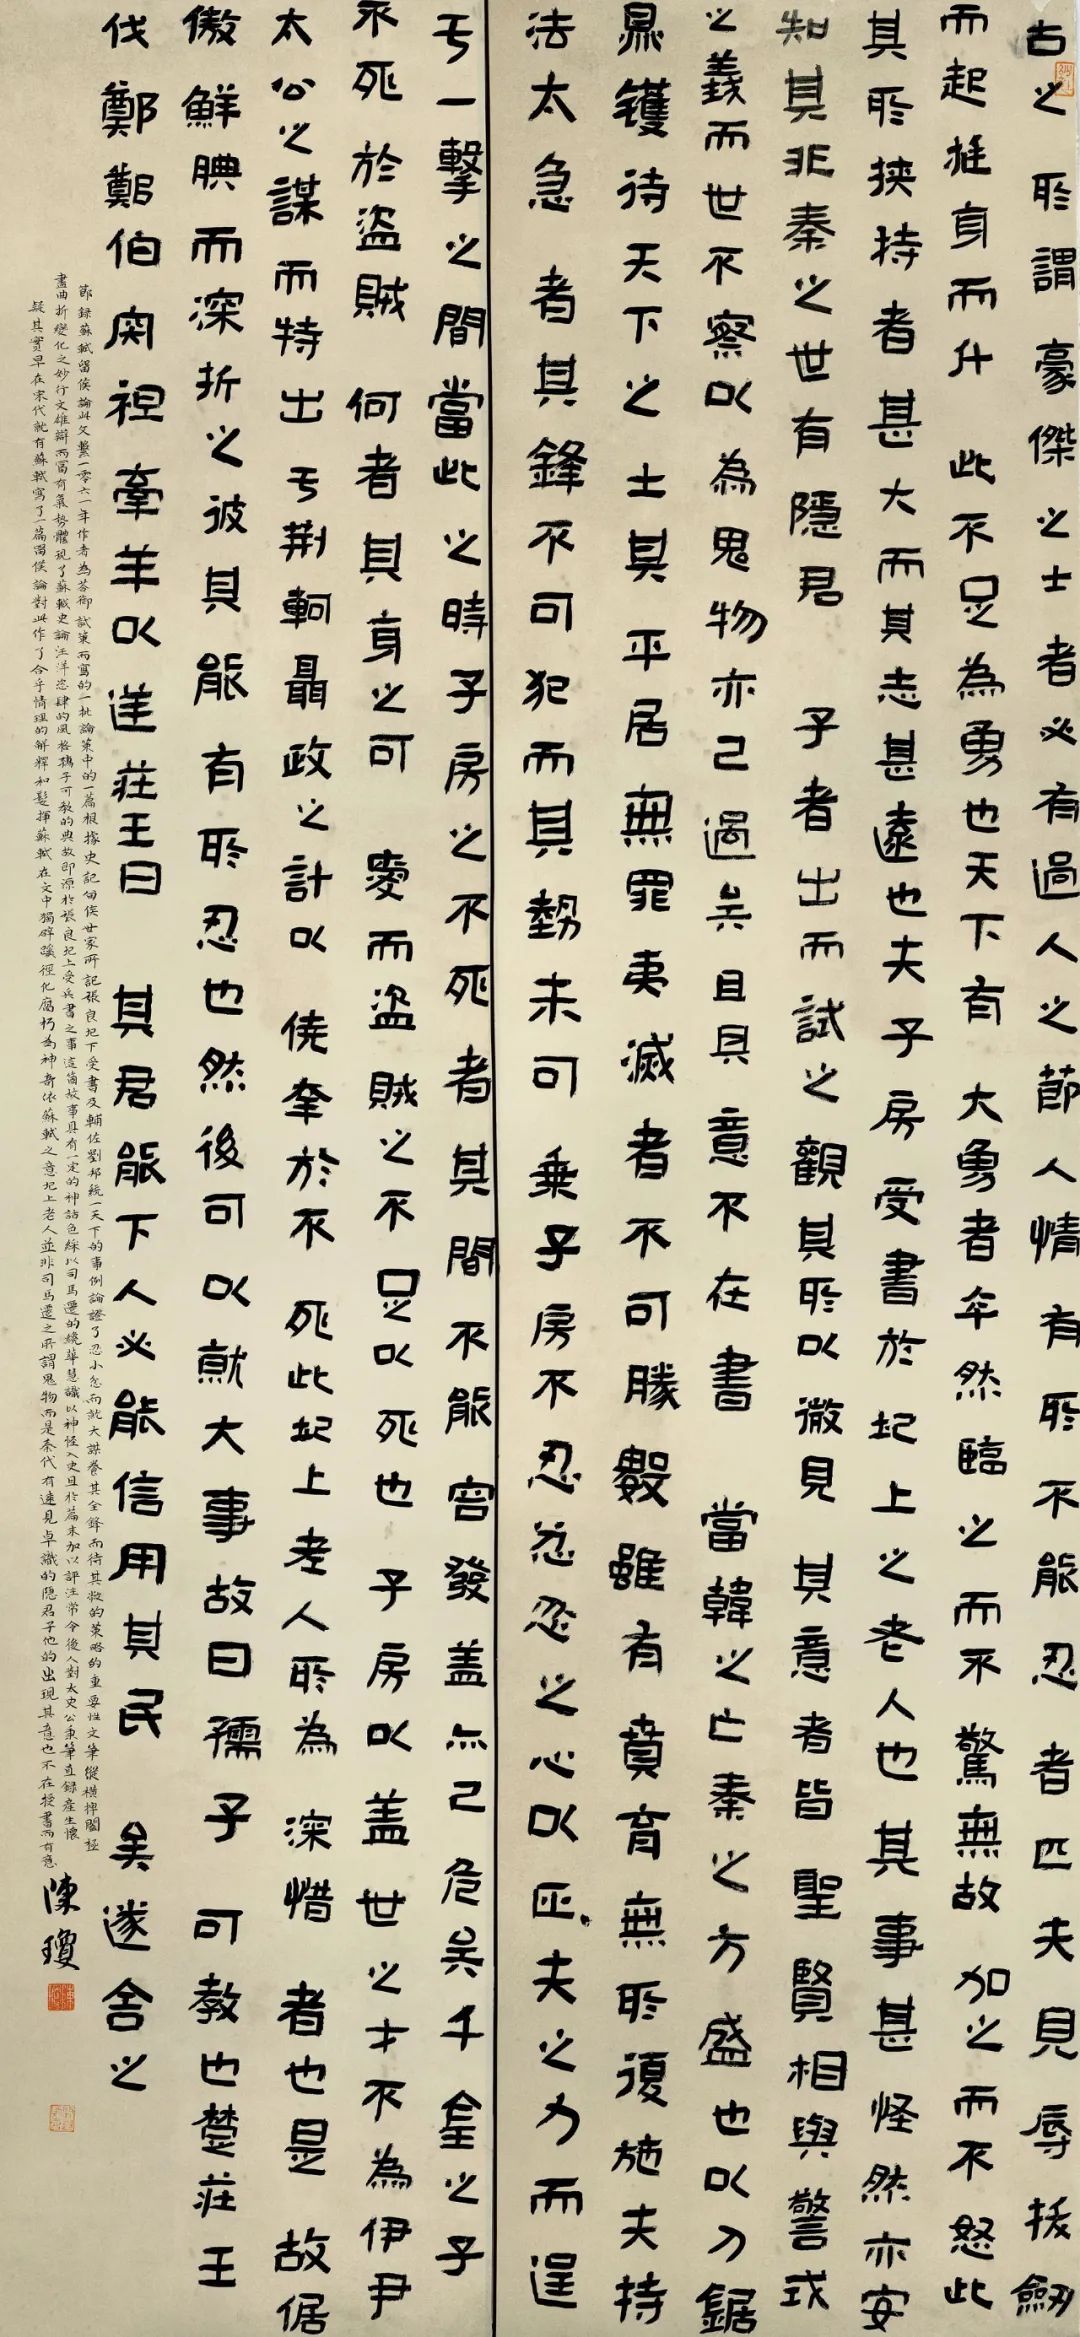 古之所謂豪傑之士者必有過人之節人情有所不能忍者匹夫見辱拔劒
而起挺身而鬥此不足為勇也天下有大勇者卒然臨之而不驚無故加之而不怒此
其所挾持者甚大而其志甚遠也夫子房受書於圯上之老人也其事甚怪然亦安
知其非秦之世有隱君子者出而試之觀其所以微見其意者皆聖賢相與警戒
之義而世不察以為鬼物亦已過矣且其意不在書當韓之亡秦之方盛也以刀鋸
鼎鑊待天下之士其平居無罪夷滅者不可勝數雖有賁育無所復施夫持
法太急者其鋒不可犯而其勢未可乘子房不忍忿忿之心以匹夫之力而逞
于一擊之間當此之時子房之不死者其間不能容發盖亦已危矣千金之子
不死於盜賊何者其身之可愛而盜賊之不足以死也子房以盖世之才不為伊尹
太公之謀而特出于荆軻聶政之計以僥幸於不死此圯上老人所為深惜者也是故倨
傲鮮腆而深折之彼其能有所忍也然後可以就大事故曰孺子可教也楚莊王
伐鄭鄭伯肉袒牽羊以逆莊王曰其君能下人必能信用其民矣遂舍之
節録蘇軾留侯論此文繫一零六一年作者為答御試策而寫的一批論策中的一篇根據史記留侯世家所記張良圯下受書及輔佐劉邦統一天下的事例論證了忍小忿而就大謀養其全鋒而待其敝的策略的重要性文筆縱橫捭闔極
盡曲折變化之妙行文雄辯而富有氣勢體現了蘇軾史論汪洋恣肆的風格孺子可教的典故即源於張良圯上受兵書之事這個故事具有一定的神話色綵以司馬遷的華慧識以神怪入史且於篇末加以評注常令後人對太史公秉筆直録產生懷
疑其實早在宋代就有蘇軾寫了一篇留侯論對此作了合乎情理的解釋和髮揮蘇軾在文中獨辟蹊徑化腐朽為神奇依蘇軾之意圯上老人並非司馬遷之所謂鬼物而是秦代有遠見卓識的隱君子他的出現其意也不在授書而有意
陳瓊